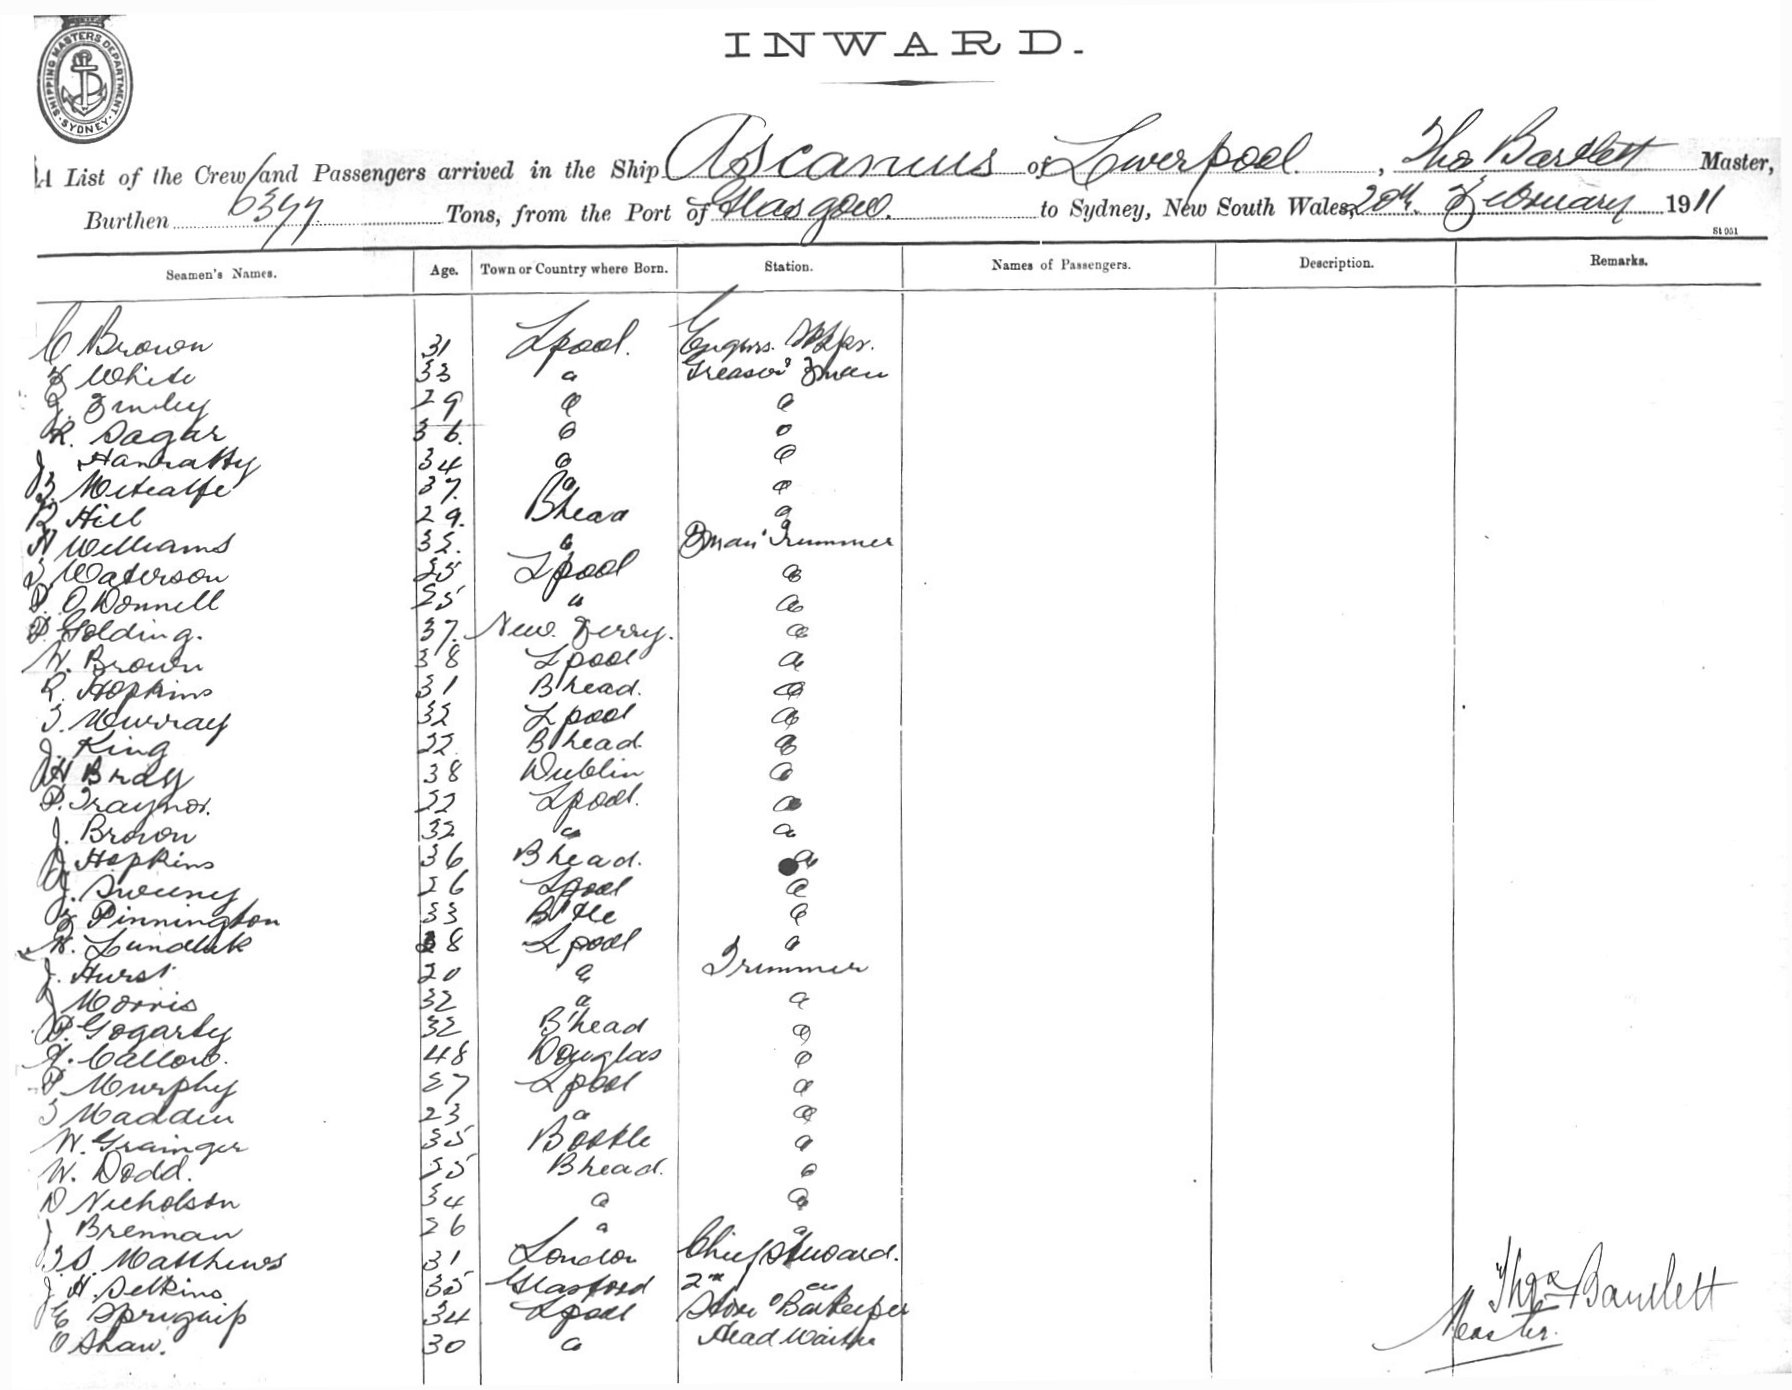 SHIPPING MASTERS DEPARTMENT. SYDNEY
INWARD.
A List of the Crew and Passengers arrived in the Ship Ascanius of Liverpool, Thos Bartlett Master,
Burthen Tons, from the Port of Glasgow. to Sydney, New South Wales, 20th February 1911
St 951
Seamen's Names. Age. Town or Country where Born. Station. Names of Passengers. Description. Remarks.
C Brown 31 Lpool. Engrs. Stkpr.
White 33 " Greaser & Fman
29 " "
R. Sagar 36. " "
J Hanratty 34 " "
Metcalfe 37. " "
R Hill 29. Bhead "
Williams " Fman & Trimmer
Waterson Lpool "
P. O'Donnell 25 " "
P. Golding. 37. New Ferry. "
W. Brown 38 Lpool "
R. Hopkins 31 B'head. "
T. Murray Lpool "
J. King 22 B'head. "
Bray 38 Dublin "
P. Traynor. 22 Lpool. "
J. Brown 32 " "
J. Hopkins 36 B'head. "
J. Sweeny 26 Lpool "
Pinnington 33 B'tle "
38 Lpool "
J. Hurst 20 " Trimmer
J Morris 32 " "
P. Gogarty 32 B'head "
Callow. 48 Douglas "
P. Murphy 27 Lpool "
T Madden 23 " "
W. Grainger 35 Bootle "
W. Dodd. B'head. "
D Nicholson 34 " "
J Brennan 26 " "
T. S. Matthews 31 London Chief Steward.
J. H. Selkins 35 2nd "
E 34 Lpool Store & Barkeeper
O Shaw. 30 " Head Waiter
Thos Bartlett
Master.